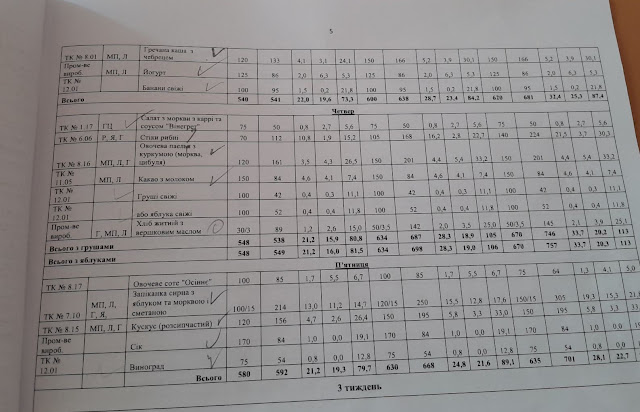 5
Гречана каша з
ТК № 8.01 МП, Л чебрецем 120 133 4,1 3,1 24,1 150 166 5,2 3,9 30,1 150 166 5,2 3,9 30,1
Пром-ве
вироб. МП, Л Йогурт 125 86 2,0 6,3 5,3 125 86 2,0 6,3 5,3 125 86 2,0 6,3 5,3
ТК №
12.01 Банани свіжі 100 95 1,5 0,2 21,8 100 95 1,5 0,2 21,8 100 95 1,5 0,2 21,8
Всього 540 541 22,0 19,6 73,3 600 638 28,7 23,4 84,2 620 681 32,4 25,3 87,4
Четвер
Салат з моркви з каррі та
ТК № 1.17 ГЦ соусом "Вінегрет" 75 50 0,8 2,7 5,6 75 50 0,8 2,7 5,6 75 50 0,8 2,7 5,6
ТК № 6.06 Р, Я, Г Стіки рибні 70 112 10,8 1,9 15,2 105 168 16,2 2,8 22,7 140 224 21,5 3,7 30,3
Овочева паелья з
куркумою (морква,
ТК № 8.16 МП, Л, Г цибуля) 120 161 3,5 4,3 26,5 150 201 4,4 5,4 33,2 150 201 4,4 5,4 33,2
ТК №
11.05 МП, Л Какао з молоком 150 84 4,6 4,1 7,4 150 84 4,6 4,1 7,4 150 84 4,6 4,1 7,4
ТК №
12.01 Груші свіжі 100 42 0,4 0,3 11,1 100 42 0,4 0,3 11,1 100 42 0,4 0,3 11,1
ТК №
12.01 або яблука свіжі 100 52 0,4 0,4 11,8 100 52 0,4 0,4 11,8 100 52 0,4 0,4 11,8
Пром-ве Хліб житній з
вироб. Г, МП, Л вершковим маслом 30/3 89 1,2 2,6 15,0 50/3,5 142 2,0 3,5 25,0 50/3,5 145 2,1 3,9 25,1
Всього з грушами 548 538 21,2 15,9 80,8 634 687 28,3 18,9 105 670 746 33,7 20,2 113
Всього з яблуками 548 549 21,2 16,0 81,5 634 698 28,3 19,0 106 670 757 33,7 20,3 113
П'ятниця
ТК № 8.17 Овочеве соте "Осіннє" 100 85 1,7 5,5 6,7 100 85 1,7 5,5 6,7 75 64 1,3 4,1 5,0
Запіканка сирна з
МП, Л, яблуком та морквою і
ТК № 7.10 Г, Я, сметаною 100/15 214 13,0 11,2 14,7 120/15 250 15,5 12,8 17,6 150/15 305 19,3 15,3
ТК № 8.15 МП, Л, Г Кускус (розсипчастий) 120 156 4,7 2,6 26,4 150 195 5,8 3,3 33,0 150 195 5,8 3,3
Пром-ве
вироб. Сік 170 84 1,0 0,0 19,1 170 84 1,0 0,0 19,1 170 84 1,0 0,0
ТК №
12.01 Виноград 75 54 0,8 0,0 12,8 75 54 0,8 0,0 12,8 75 54 0,8 0,0
Всього 580 592 21,2 19,3 79,7 630 668 24,8 21,6 89,1 635 701 28,1 22,7
3 тиждень